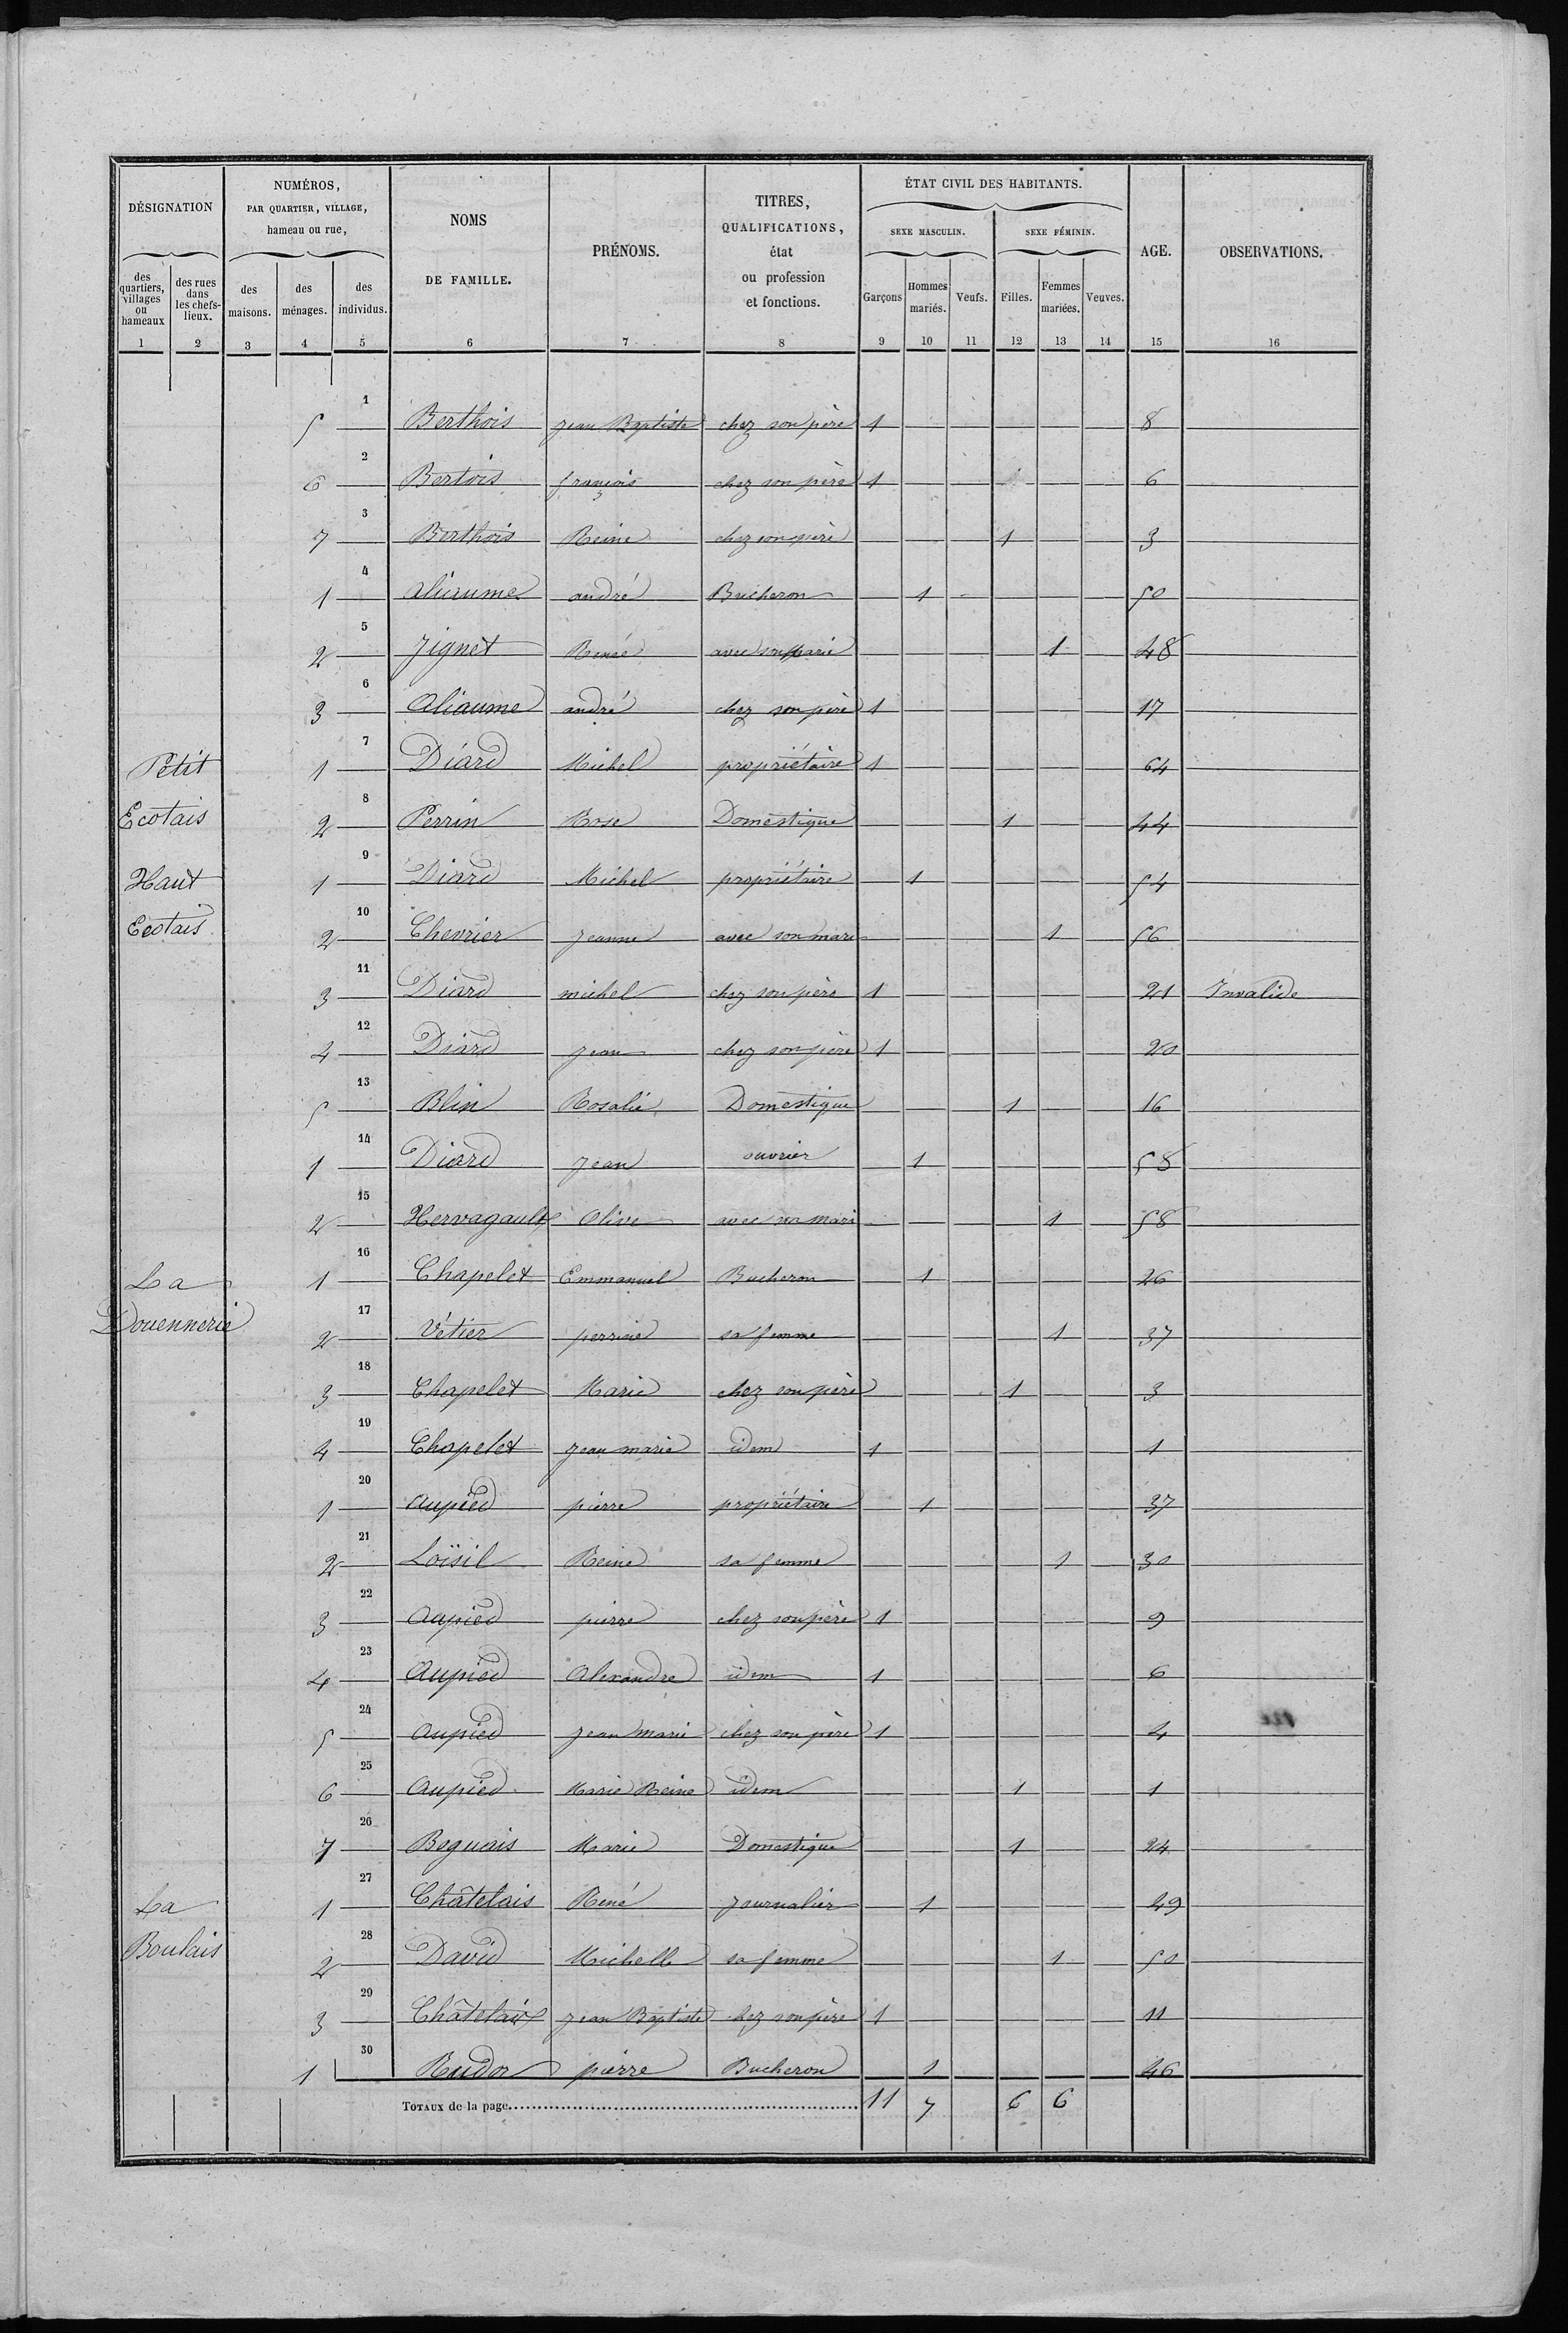 DÉSIGNATION
NUMÉROS,
PAR QUARTIER, VILLAGE,
hameau ou rue,
NOMS
DE FAMILLE.
PRÉNOMS.
TITRES,
QUALIFICATIONS,
état
ou profession
et fonctions.
ÉTAT CIVIL DES HABITANTS.
SEXE MASCULIN.
SEXE FÉMININ.
AGE.
OBSERVATIONS.
des quartiers, villages ou hameaux
des rues dans les chefs-lieux.
des maisons.
des ménages.
des individus.
Garçons
Hommes mariés.
Veufs.
Filles.
Femmes mariées.
Veuves.
1 2 3 4 5 6 7 8 9 10 11 12 13 14 15 16
5 1 Berthois jean Baptiste chez son père 1 8
6 2 Bertois françois chez son père 1 6
7 3 Berthois Reine chez son père 1 3
1 4 aliaume andré Bucheron 1 50
2 5 Jignet Renée avec son mari 1 48
3 6 Aliaume andré chez son père 1 17
Petit 1 7 Diard Michel propriétaire 1 64
Ecotais 2 8 Perrin Rose Domestique 1 44
Haut 1 9 Diard Michel propriétaire 1 54
Ecotais 2 10 Chevrier jeanne avec son mari 1 56
3 11 Diard michel chez son père 1 21 Invalide
4 12 Diard jean chez son père 1 20
5 13 Blin Rosalie Domestique 1 16
1 14 Diard jean ouvrier 1 58
2 15 Hervagault Olive avec son mari 1 58
La 1 16 Chapelet Emmanuel Bucheron 1 26
Douennerie 2 17 Vétier perrine sa femme 1 37
3 18 Chapelet Marie chez son père 1 3
4 19 Chapelet jean marie idem 1 1
1 20 aupied pierre propriétaire 1 37
2 21 Loïsil Reine sa femme 1 30
3 22 Aupied pierre chez son père 1 9
4 23 Aupied Alexandre idem 1 6
5 24 aupied jean marie chez son père 1 4
6 25 Aupied Marie Reine idem 1 1
7 26 Beguais Marie Domestique 1 24
La 1 27 Châtelais René journalier 1 49
Boulais 2 28 David Michelle sa femme 1 50
3 29 Châtelais jean Baptiste chez son père 1 11
1 30 Rudor pierre Bucheron 1 46
TOTAUX de la page 11 7 6 6